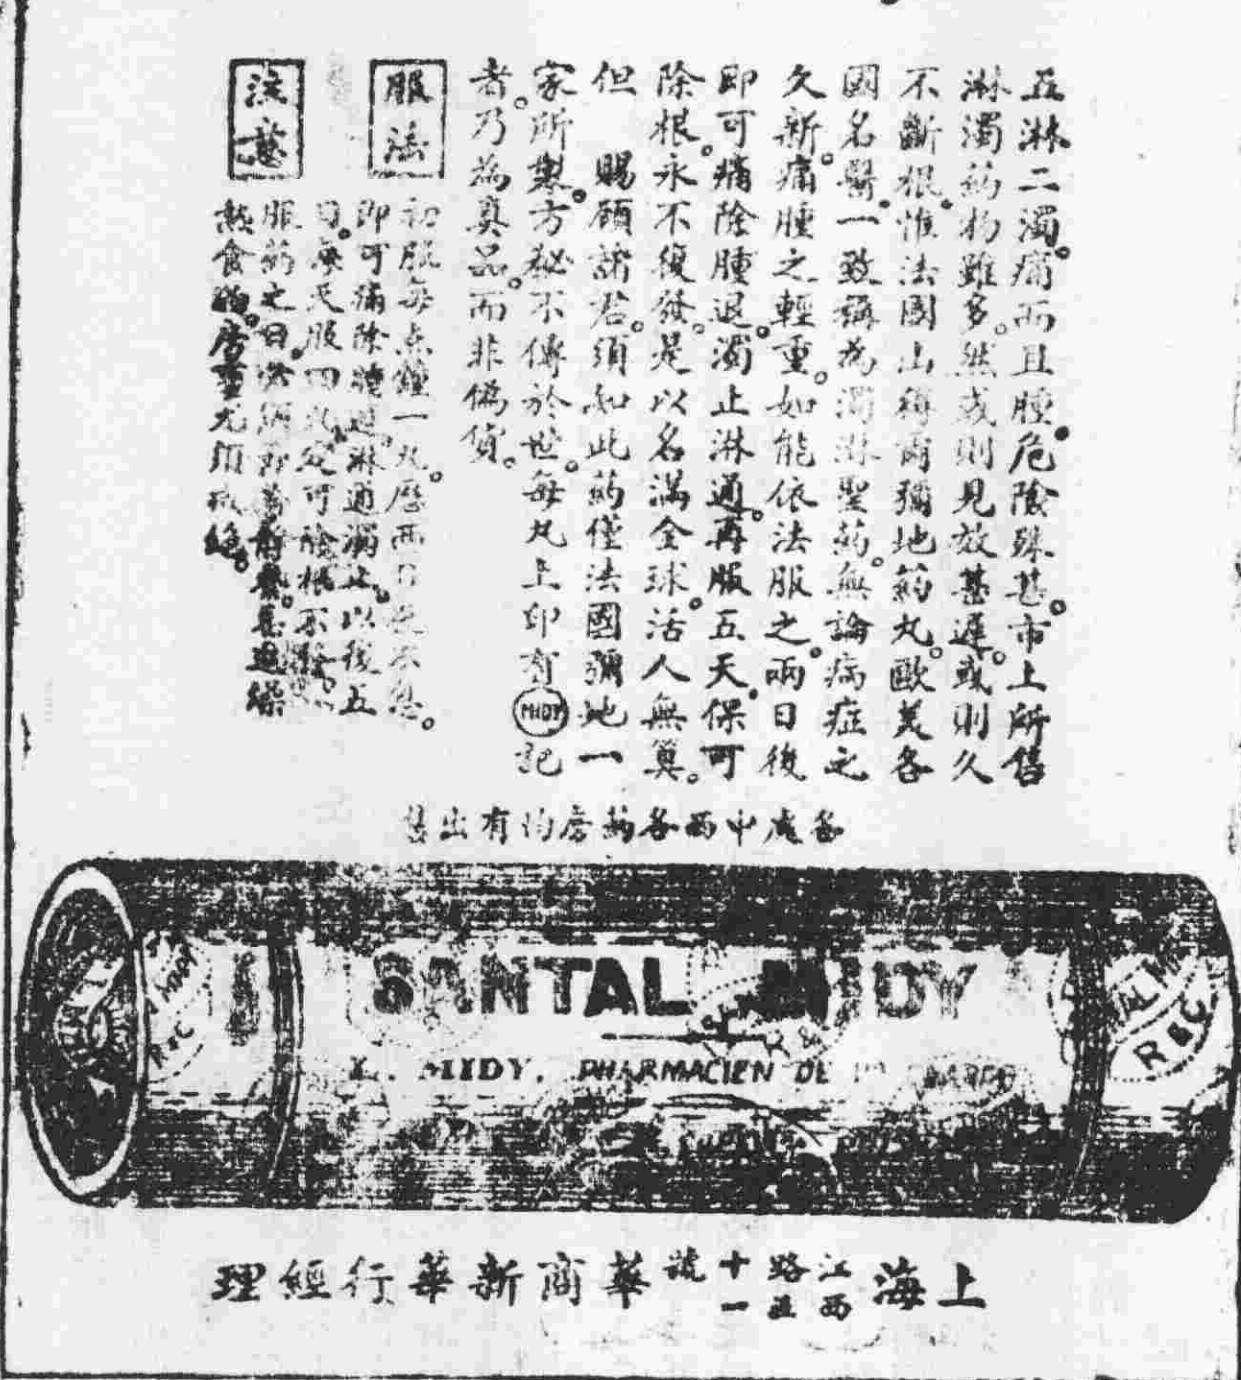 五淋二濁。痛而且腫。危險殊甚。市上所售
淋濁葯物雖多。然或則見效甚遲。或則久
不斷根。惟法國山得爾彌地葯丸。歐美各
國名醫。一致稱為濁淋聖葯。無論病症之
久新。痛腫之輕重。如能依法服之。兩日後
即可痛除腫退。濁止淋通。再服五天。保可
除根。永不復發。是以名滿全球。活人無算。
但 賜顧諸君。須知此葯僅法國彌地一
家所製。方秘不傳於世。每丸上印有MIDY記
者。乃為真品。而非偽貨。
服法
初服每点鐘一丸。歷兩日
即可痛除腫退。淋通濁止。以後五
日。每天服四丸。定可除根不發。
注意
服葯之日
熱食物。房事尤須戒絕。
各處中西各葯房均有出售
SANTAL MIDY
MIDY. PHARMACIEN DE
上海
江西路五十一號
華商新華行經理